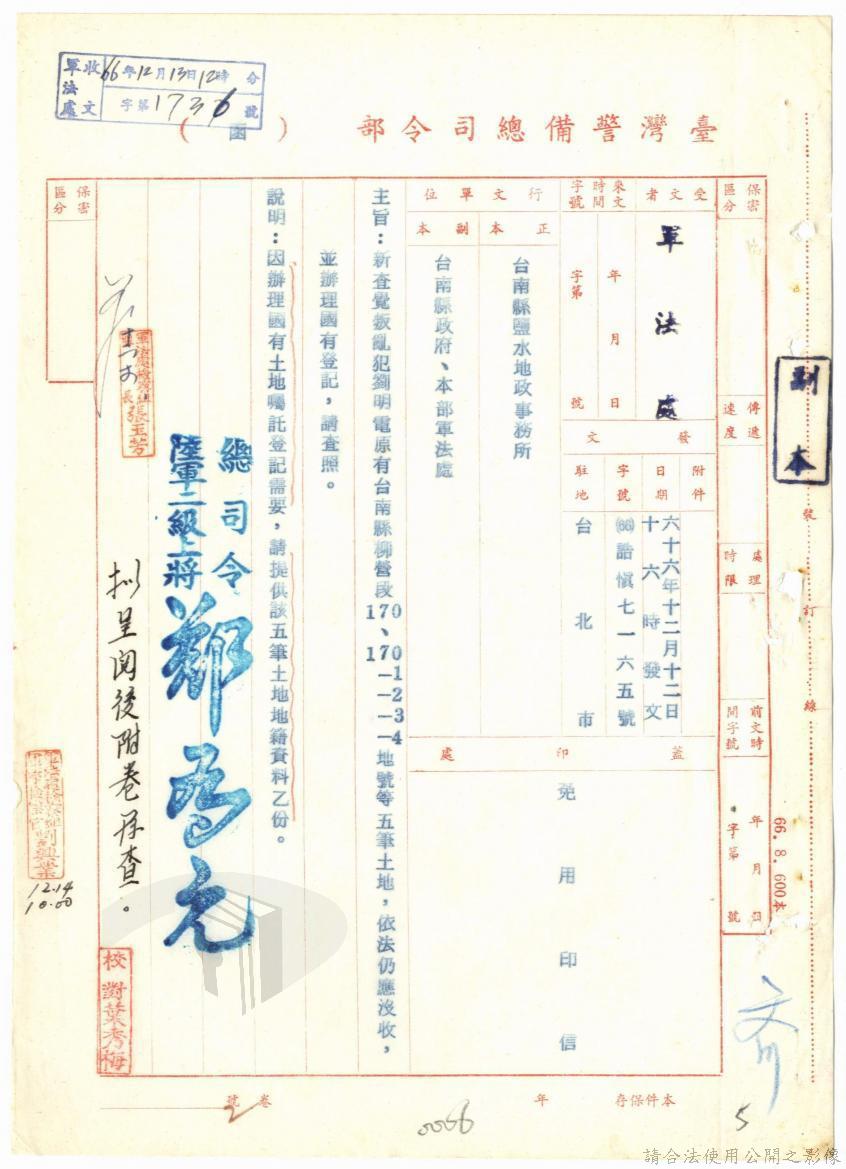 臺灣警備總司令部（函）
收文 66年12月13日12時 分
軍法處 字第1736號
副本
保密區分
傳遞速度
處理時限
前文時間字號 年 月 日 字第 號
66. 8. 600本
裝訂線
受文者
軍法處
來文時間字號
年 月 日
字第 號
行文單位
正本
台南縣鹽水地政事務所
副本
台南縣政府、本部軍法處
發文
附件
日期
六十六年十二月十二日
十六時發文
字號
(66)諧愼七一六五號
駐地
台北市
蓋印處
免用印信
主旨：新查覺叛亂犯劉明電原有台南縣柳營段170、170-1-2-3-4地號等五筆土地，依法仍應沒收，
並辦理國有登記，請查照。
說明：因辦理國有土地囑託登記需要，請提供該五筆土地地籍資料乙份。
總司令
陸軍二級上將 鄭為元
擬呈閱後附卷存查。
張玉芳
12.14
10.00
校對葉秀梅
保密區分
本件保存 年
卷 號
2
0068
5
請合法使用公開之影像